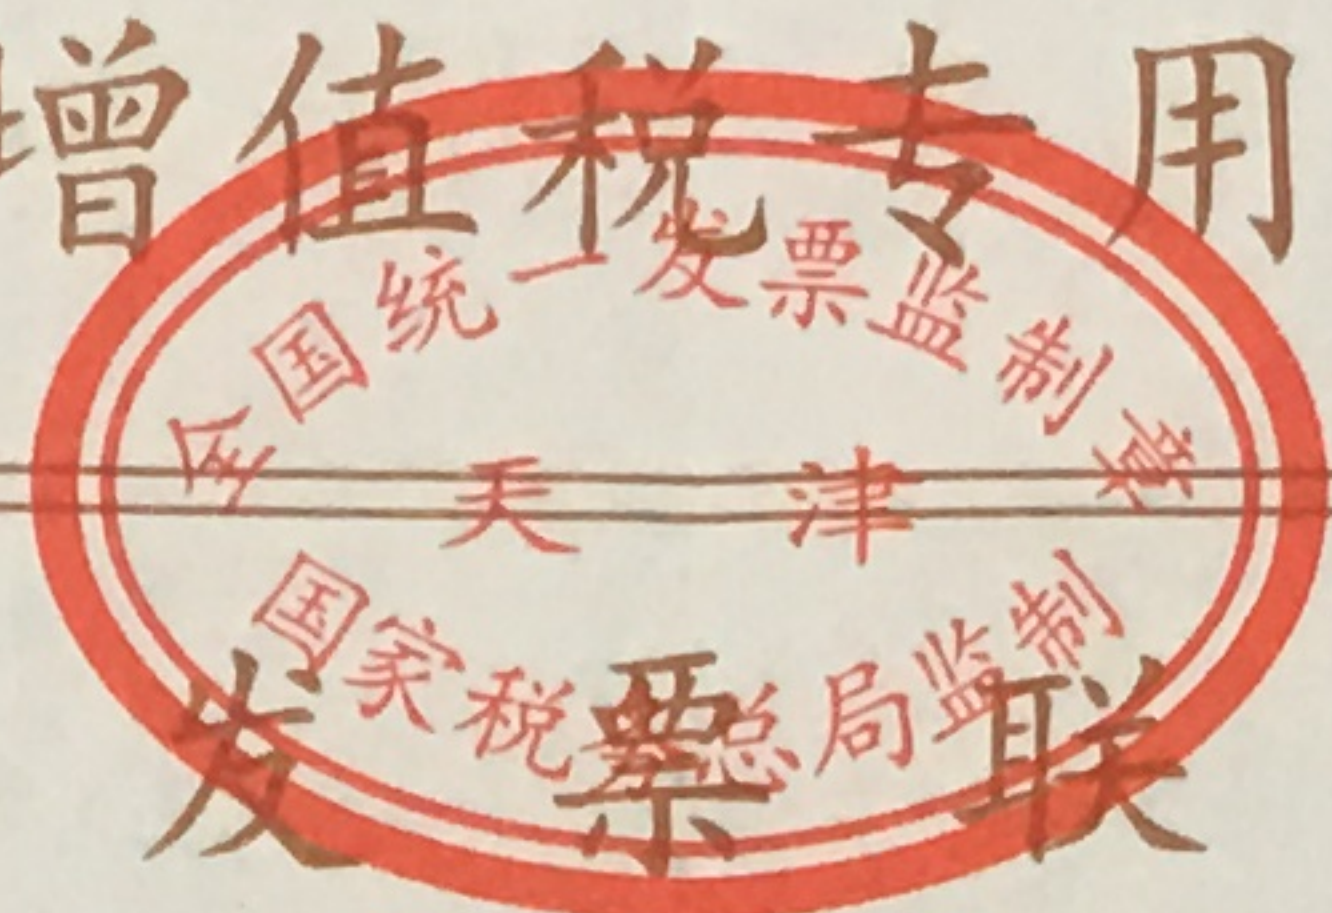 增值税专用
全国统一发票监制章
天津
国家税务总局监制
发票联